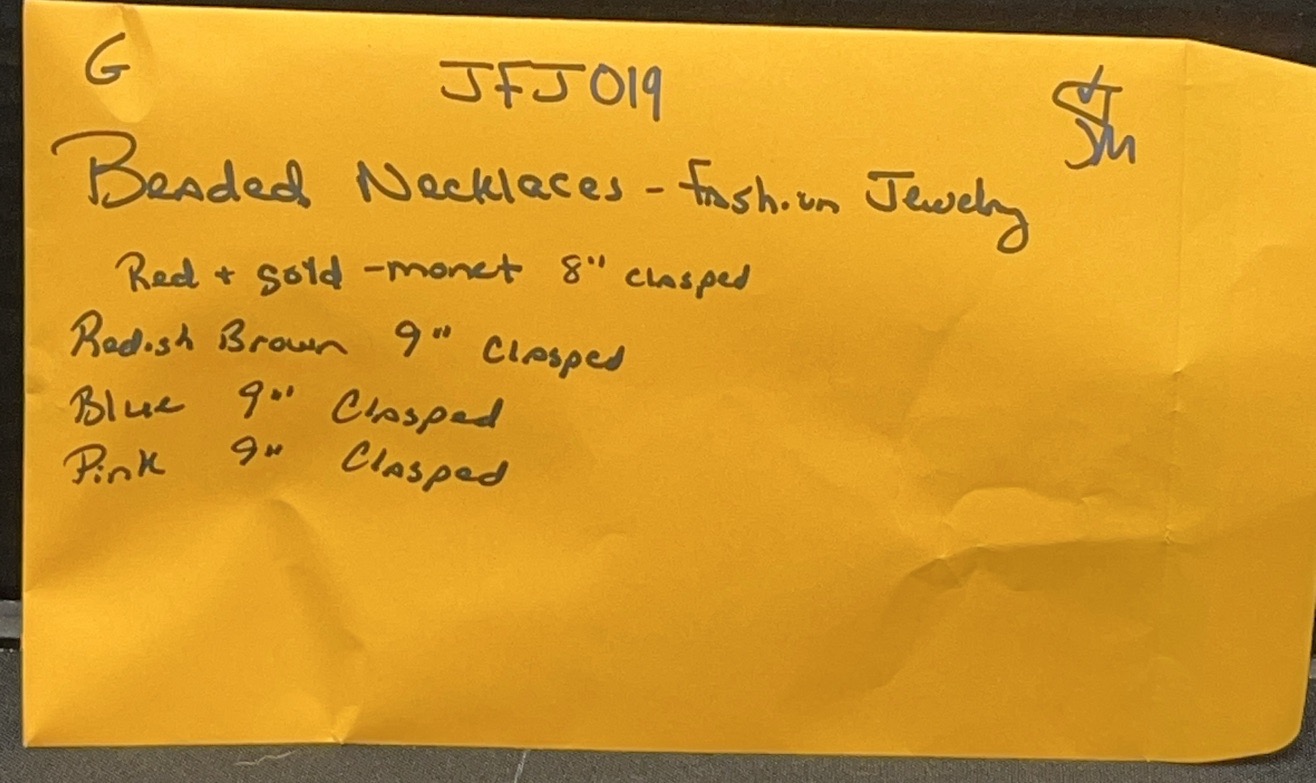 G JFJ019
JM
Beaded Necklaces - Fashion Jewelry
Red + gold - monet 8" clasped
Redish Brown 9" Clasped
Blue 9" Clasped
Pink 9" Clasped